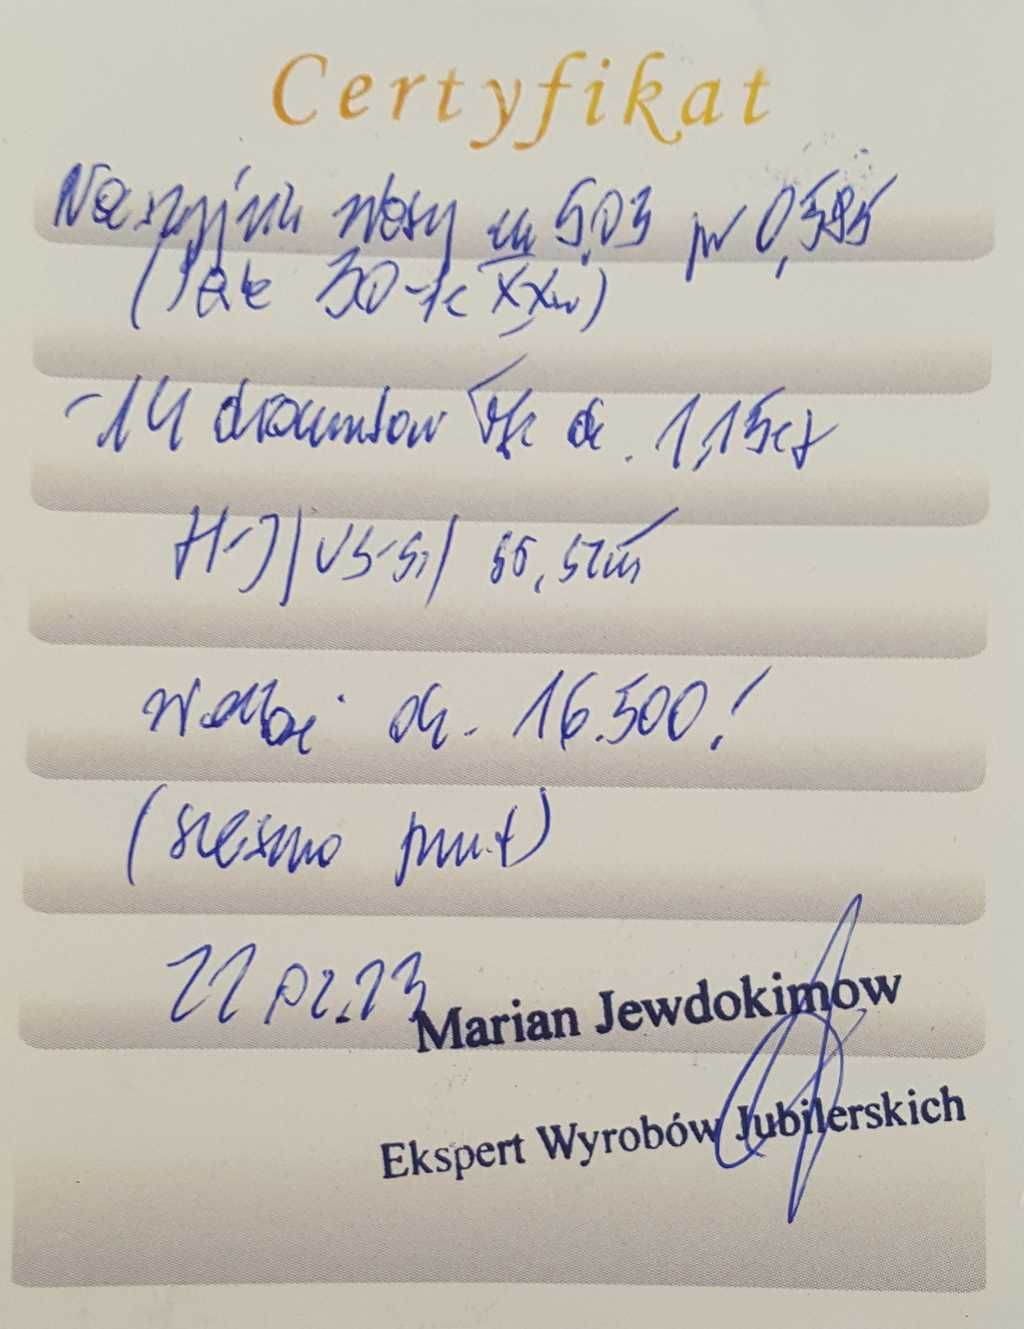 Certyfikat
Naszyjnik złoty 5,03 pr 0,585
(lata 30-te XXw)
-14 diamentów ok. 1,15ct
H-J/VS-SI/
ok. 16.500!
22 02.23
Marian Jewdokimow
Ekspert Wyrobów Jubilerskich